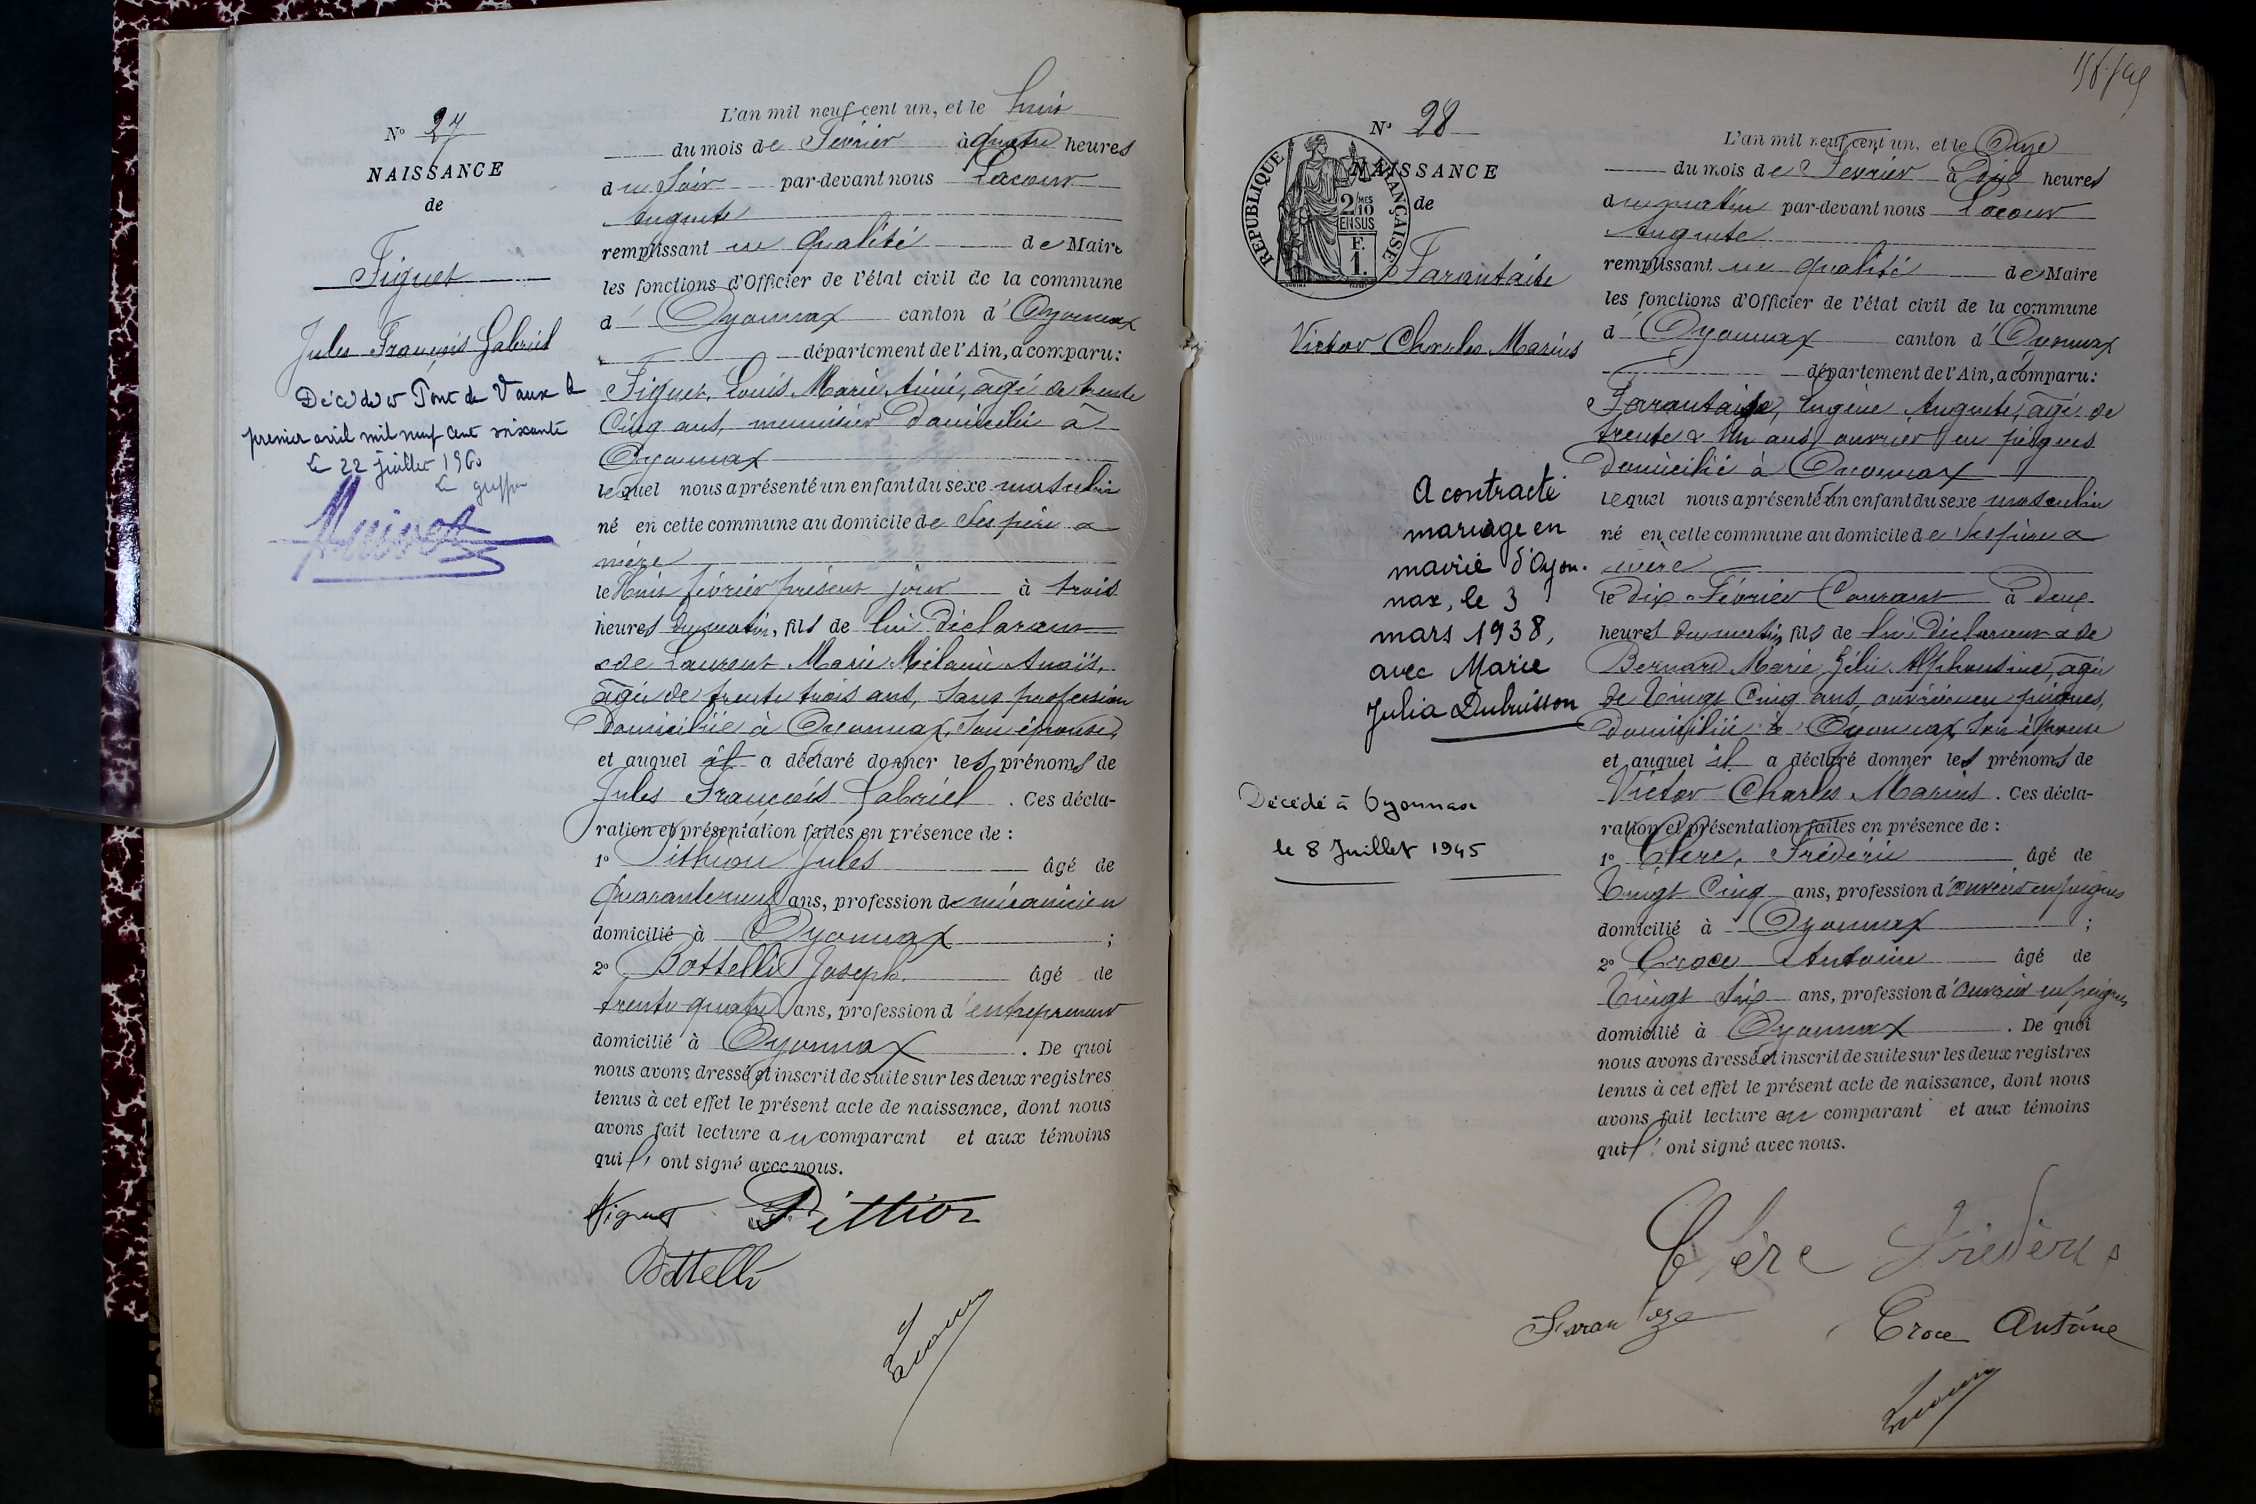 N° 27
NAISSANCE
de
Figuet
Jules François Gabriel
Décédé à Pont de Vaux le
premier avril mil neuf cent soixante
Le 22 juillet 1960
Le greffier
L'an mil neuf cent un, et le huit
du mois de Février à quatre heures
du Soir par-devant nous Lacour
Auguste
remplissant en qualité de Maire
les fonctions d'Officier de l'état civil de la commune
d' Oyonnax canton d'Oyonnax
département de l'Ain, a comparu:
Figuet, Louis Marie Aimé, âgé de trente
Cinq ans, menuisier Domicilié à
Oyonnax
lequel nous a présenté un enfant du sexe masculin
né en cette commune au domicile de Ses père &
mère
le Huit février présent jour à trois
heures du matin, fils de lui Déclarant
& de Laurent Marie Mélanie Anaïs,
âgée de trente trois ans, Sans profession
Domiciliée à Oyonnax, Son épouse,
et auquel il a déclaré donner les prénoms de
Jules François Gabriel . Ces décla-
ration et présentation faites en présence de :
1° Pithion Jules âgé de
Quarante neuf ans, profession de mécanicien
domicilié à Oyonnax ;
2° Bottelli Joseph âgé de
trente quatre ans, profession d'entrepreneur
domicilié à Oyonnax . De quoi
nous avons dressé et inscrit de suite sur les deux registres
tenus à cet effet le présent acte de naissance, dont nous
avons fait lecture au comparant et aux témoins
qui l' ont signé avec nous.
Figuet Pittion
Bottelli
Lacour
N° 28
NAISSANCE
de
REPUBLIQUE FRANÇAISE
2 MES
10
EN SUS
F.
1.
Tarantaise
Victor Charles Marius
A contracté
mariage en
mairie d'Oyon-
nax, le 3
mars 1938,
avec Marie
Julia Dubuisson
Décédé à Oyonnax
le 8 Juillet 1945
L'an mil neuf cent un, et le Onze
du mois de Fevrier à Onze heures
du matin par-devant nous Lacour
Auguste
remplissant en qualité de Maire
les fonctions d'Officier de l'état civil de la commune
d' Oyonnax canton d'Oyonnax
département de l'Ain, a comparu:
Eugène Auguste, âgé de
trente & Un ans ouvrier en peignes
Domicilié à Oyonnax
lequel nous a présenté un enfant du sexe masculin
né en cette commune au domicile de Ses père &
mère
le dix Février Courant à Deux
heures du matin fils de lui Déclarant & de
Bernard Marie Zélie Alphonsine, âgée
de Vingt Cinq ans, ouvrière en peignes,
Domiciliée à Oyonnax, Son épouse
et auquel il a déclaré donner les prénoms de
Victor Charles Marius . Ces décla-
ration et présentation faites en présence de :
1° Clerc, Frédéric âgé de
Vingt Cinq ans, profession d'ouvrier en peignes
domicilié à Oyonnax ;
2° Croce Antoine âgé de
Vingt Six ans, profession d'ouvrier en peignes
domicilié à Oyonnax . De quoi
nous avons dressé et inscrit de suite sur les deux registres
tenus à cet effet le présent acte de naissance, dont nous
avons fait lecture au comparant et aux témoins
qui l' ont signé avec nous.
Clère Frédéric
Croce Antoine
Lacour